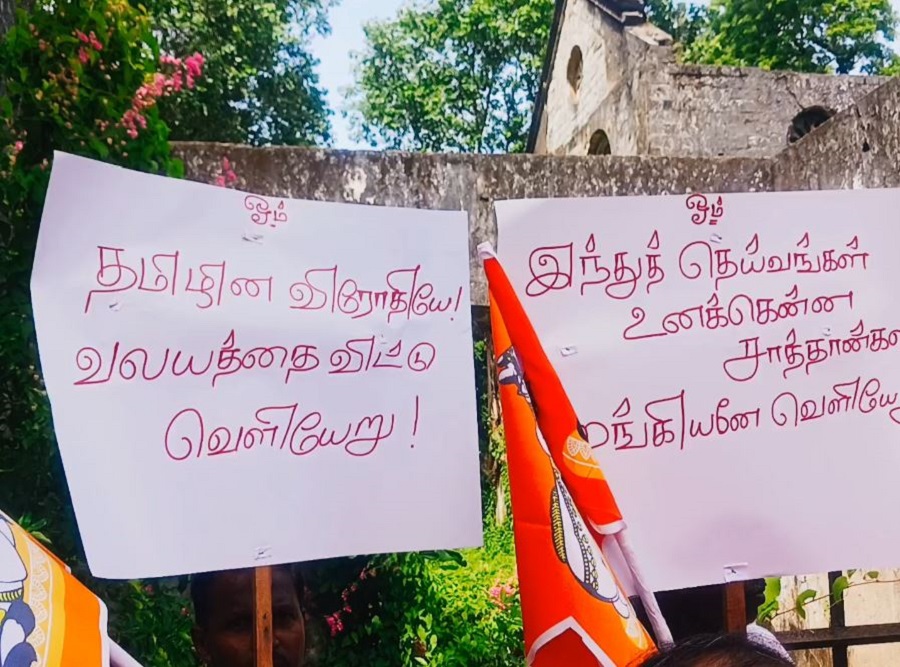 ஓம்
தமிழின விரோதியே!
வலயத்தை விட்டு
வெளியேறு !
ஓம்
இந்துத் தெய்வங்கள்
உனக்கென்ன
சாத்தான்க
மங்கியனே வெளியே